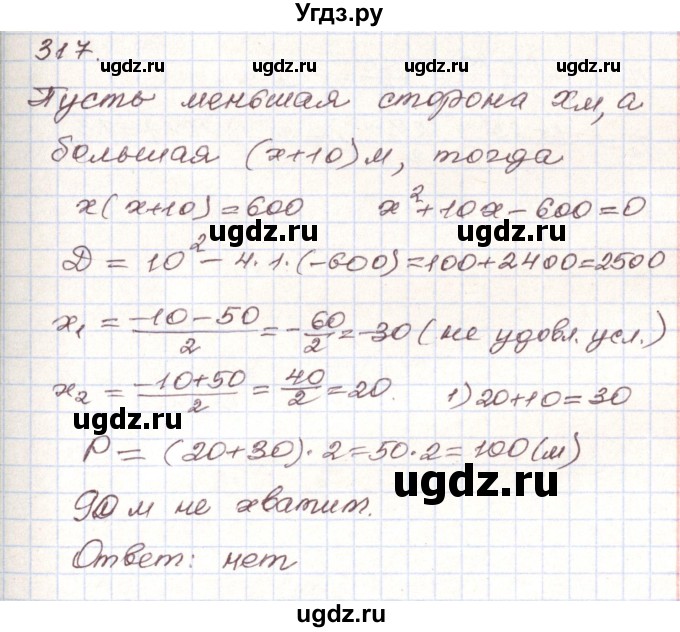 Угдз.ру
317.
ugdz.ru ugdz.ru
Пусть меньшая сторона xм, а
большая (x+10)м, тогда
ugdz.ru ugdz.ru
x(x+10)=600 x²+10x-600=0
ugdz.ru
D = 10² - 4·1·(-600)=100+2400=2500
x₁ = (-10-50)/2 = -60/2 = -30 (не удовл. усл.)
ugdz.ru ugdz.ru
x₂ = (-10+50)/2 = 40/2 = 20. 1) 20+10=30
ugdz.ru ugdz.ru
P = (20+30)·2=50·2=100(м)
ugdz.ru
90 м не хватит.
ugdz.ru ugdz.ru
Ответ: нет
ugdz.ru